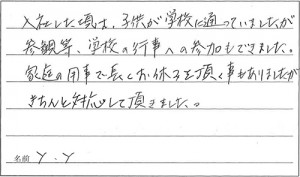 入社した頃は、子供が学校に通っていましたが
参観等、学校の行事への参加もできました。
家庭の用事で長くお休みを頂く事もありましたが
きちんと対応して頂きました。
名前 Y.Y